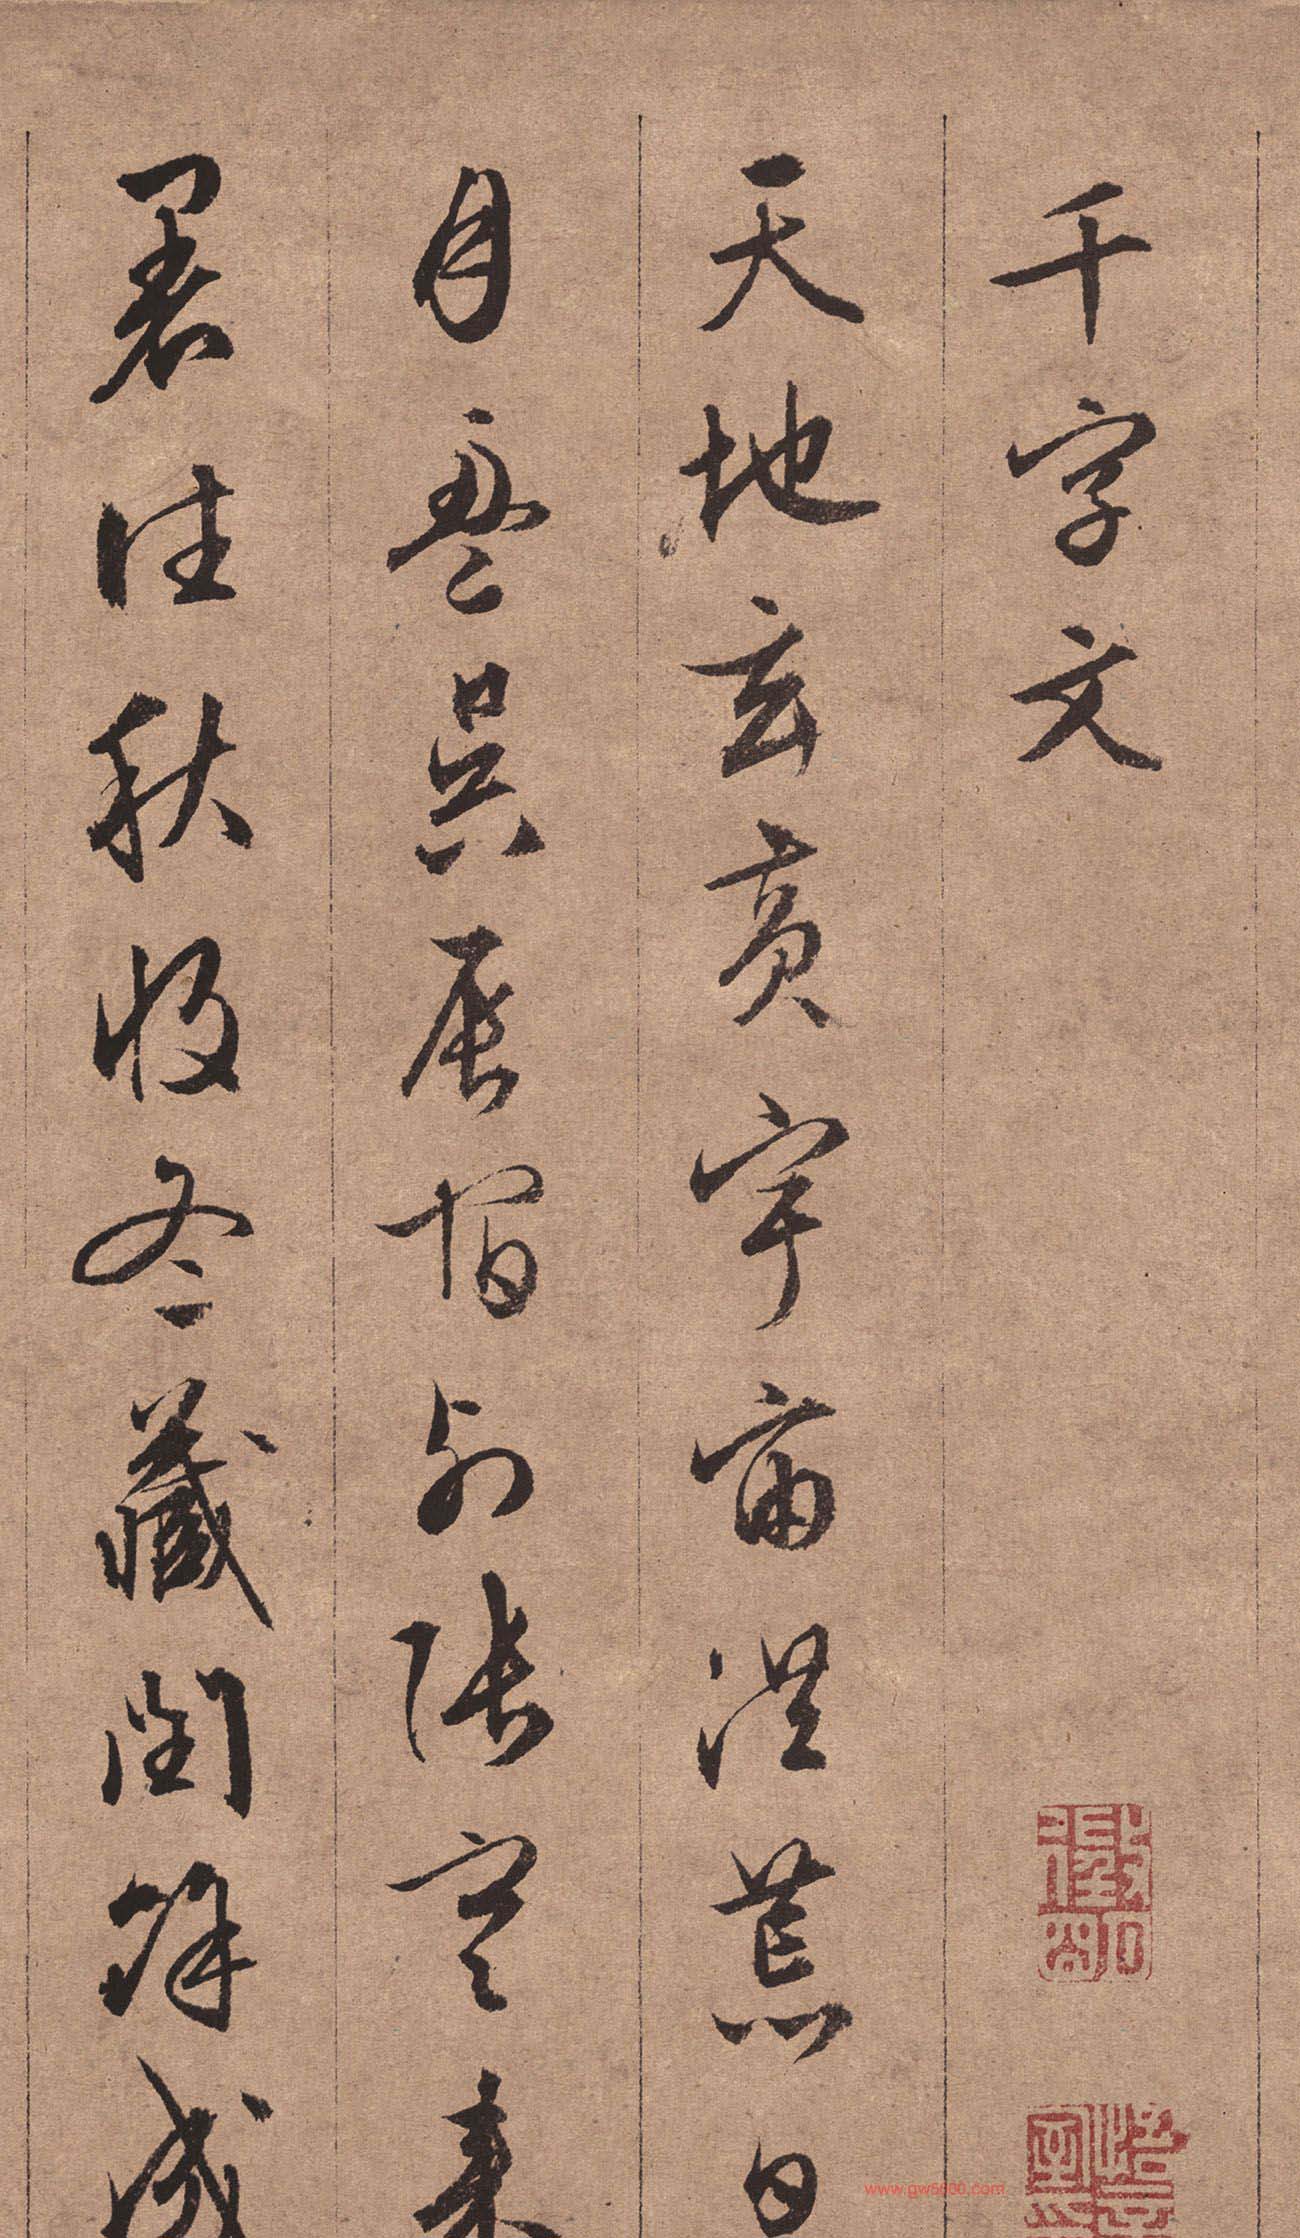 千字文
天地玄黄宇宙洪荒日
月盈昃辰宿列張寒来
暑往秋收冬藏閏餘成
www.gw5000.com